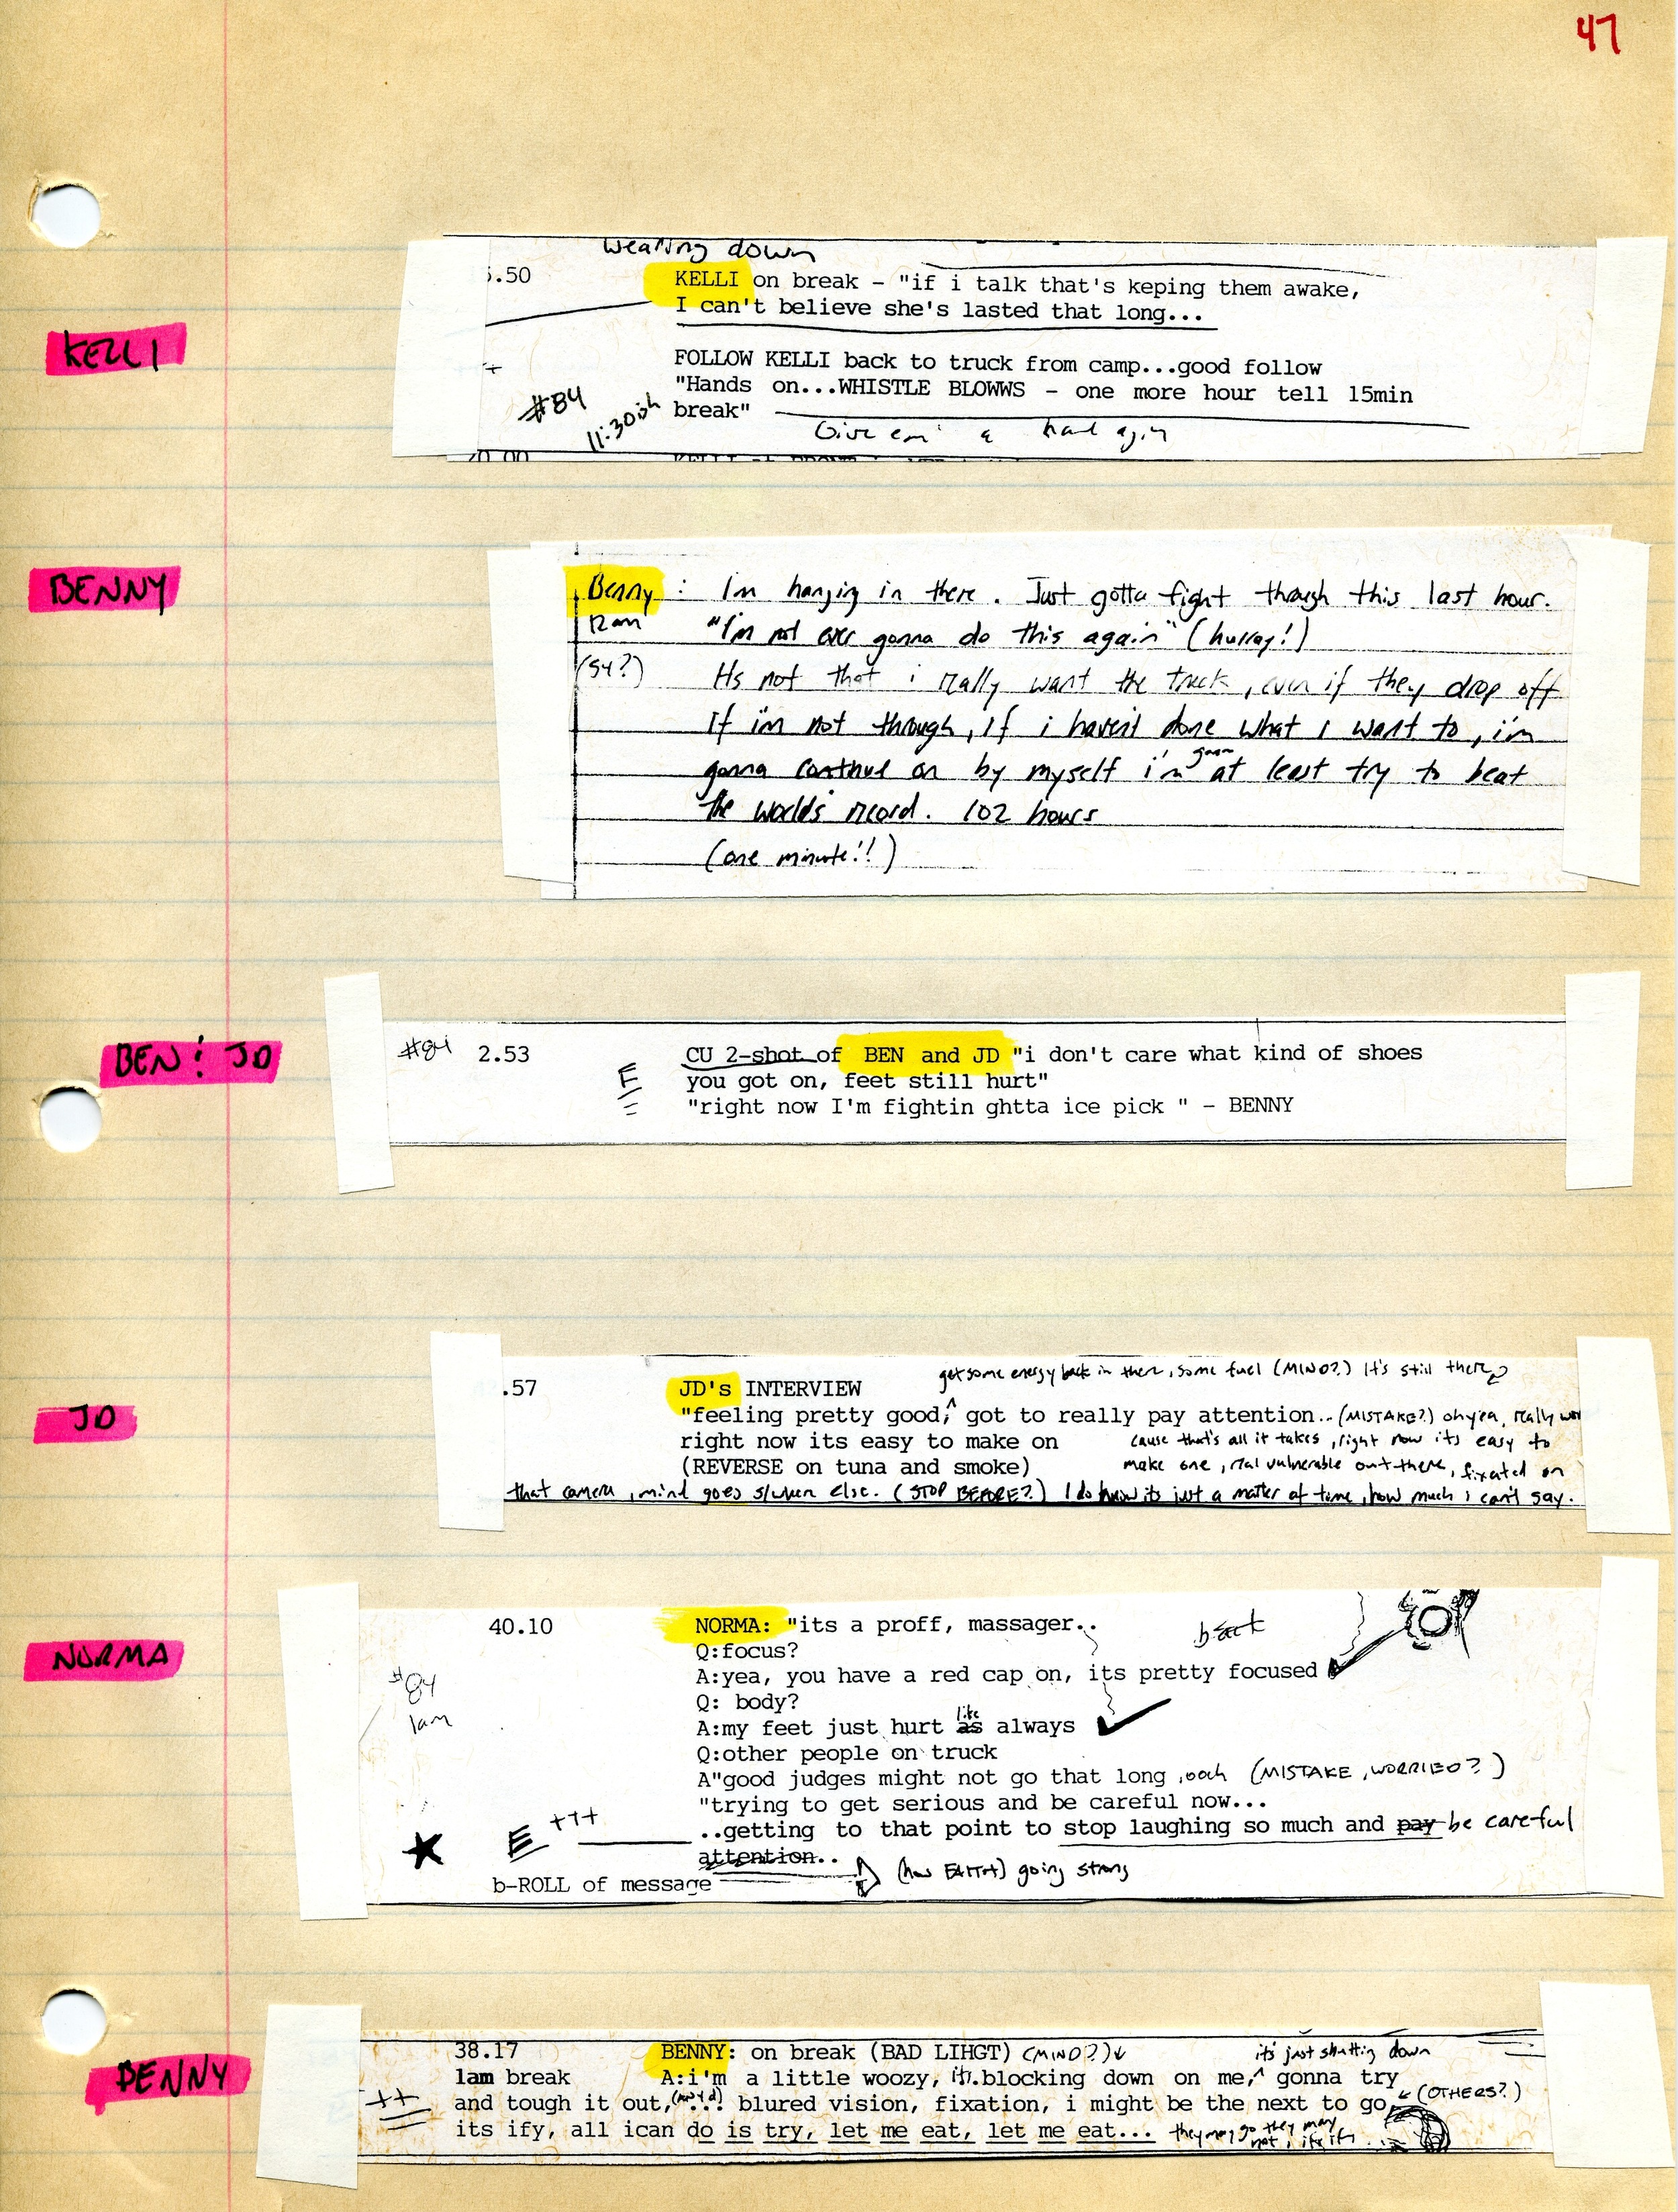 47
wearing down
.50 KELLI on break - "if i talk that's keping them awake,
I can't believe she's lasted that long...
KELLI
FOLLOW KELLI back to truck from camp...good follow
"Hands on...WHISTLE BLOWWS - one more hour tell 15min
break"
#84
11:30ish
Give em' a hand agin
BENNY
Benny : I'm hanging in there. Just gotta fight through this last hour.
12am "I'm not ever gonna do this again" (hurray!)
(54?) Its not that i really want the truck, even if they drop off
If i'm not through, if i haven't done what I want to, i'm
gonna continue on by myself i'm gonna at least try to beat
the worlds record. 102 hours
(one minute!!)
BEN : JD
#84 2.53 CU 2-shot of BEN and JD "i don't care what kind of shoes
you got on, feet still hurt"
E "right now I'm fightin ghtta ice pick " - BENNY
get some energy back in there, some fuel (MIND?) It's still there
.57 JD's INTERVIEW
JD
"feeling pretty good, got to really pay attention.. (MISTAKE?) oh yea, really
right now its easy to make on cause that's all it takes, right now its easy to
(REVERSE on tuna and smoke) make one, real vulnerable out there, fixated on
that camera, mind goes s/when else. (STOP BEFORE?) I do know its just a matter of time, how much i can't say.
40.10 NORMA: "its a proff, massager..
back
Q:focus?
NORMA
A:yea, you have a red cap on, its pretty focused
#84
1am
Q: body?
A:my feet just hurt as like always
Q:other people on truck
A"good judges might not go that long ,ooh (MISTAKE, WORRIED?)
"trying to get serious and be careful now...
E +++ ..getting to that point to stop laughing so much and pay be careful
attention..
b-ROLL of message (how FAITH) going strong
38.17 BENNY: on break (BAD LIHGT) (MIND?) it's just shutting down
BENNY
1am break A:i'm a little woozy, .blocking down on me, gonna try
++ and tough it out, ... blured vision, fixation, i might be the next to go, (OTHERS?)
its ify, all ican do is try, let me eat, let me eat... they may go they may
not